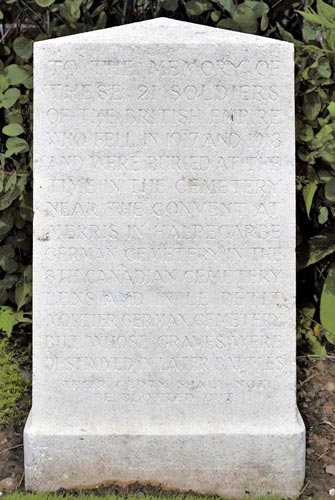 TO THE MEMORY OF
THESE 21 SOLDIERS
OF THE BRITISH EMPIRE
WHO FELL IN 1917 AND 1918
AND WERE BURIED AT THE
TIME IN THE CEMETERY
NEAR THE CONVENT AT
MERRIS IN HALPEGARBE
GERMAN CEMETERY IN THE
8TH CANADIAN CEMETERY
LENS AND IN LE PETIT
MORTIER GERMAN CEMETERY
BUT WHOSE GRAVES WERE
DESTROYED IN LATER BATTLES
THEIR GLORY SHALL NOT
BE BLOTTED OUT